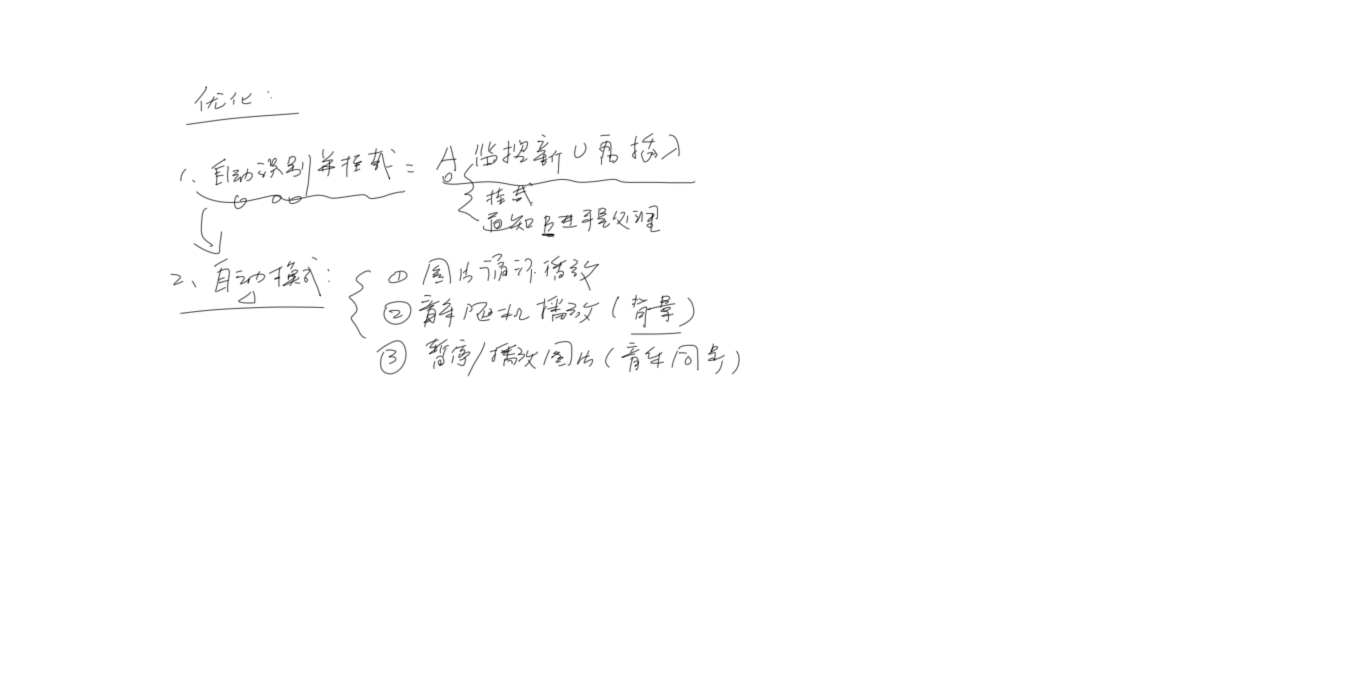 优化:
1、自动识别并挂载 = A 监控新U盘插入
挂载
通知B进程处理
2、自动模式:
① 图片循环播放
② 音乐随机播放(背景)
③ 暂停/播放图片(音乐同步)